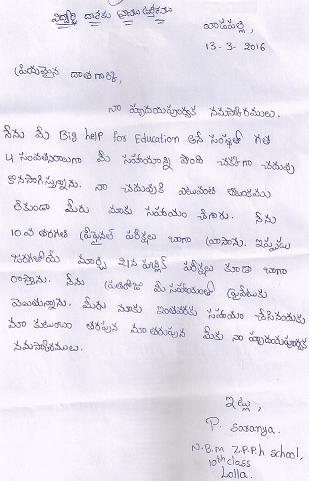 విద్యార్థి దాతకు వ్రాయు ఉత్తరము
పాడపల్లి,
13-3-2016
ప్రియమైన దాతగారికి,
నా హృదయపూర్వక నమస్కారములు.
నేను మీ Big help for Education అనే సంస్థతో గత
4 సంవత్సరాలుగా మీ సహాయాన్ని పొంది చక్కగా చదువు
కొనసాగిస్తున్నాను. నా చదువుకి ఎటువంటి ఆటంకము
లేకుండా మీరు మాకు సహాయం చేశారు. నేను
10వ తరగతి ప్రీఫైనల్ పరీక్షలు బాగా వ్రాసాను. ఇప్పుడు
జరగబోయే మార్చి 21న పబ్లిక్ పరీక్షలు కూడా బాగా
రాస్తాను. నేను ప్రతిరోజు మీ సహాయంతో ప్రైవేటుకు
వెలుతున్నాను. మీరు మాకు ఇంతవరకు సహాయం చేసినందుకు
మా కుటుంబం తరపున మా తరుపున మీకు నా హృదయపూర్వక
నమస్కారములు.
ఇట్లు,
P. Saranya.
N.B.M Z.P.P.h school,
10th class
Lolla.